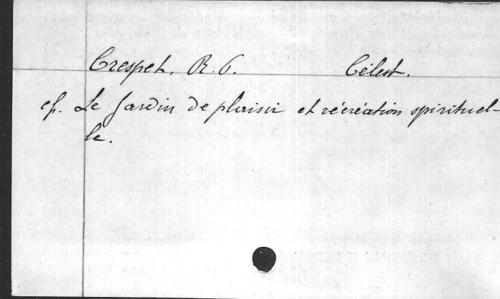 Crespet, R. P. Célest.
cf. Le Jardin de plaisir et récréation spirituel-
le.